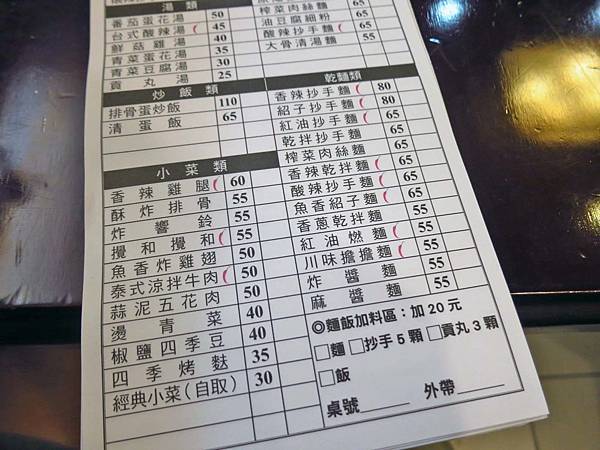 湯類
番茄蛋花湯 50
台式酸辣湯 45
鮮菇雞湯 40
青菜蛋花湯 35
青菜豆腐湯 30
貢丸湯 25
炒飯類
排骨蛋炒飯 110
清蛋飯 65
小菜類
香辣雞腿 60
酥炸排骨 55
炸響鈴 55
攪和攪和 55
魚香炸雞翅 50
泰式涼拌牛肉 50
蒜泥五花肉 50
燙青菜 40
椒鹽四季豆 40
四季烤麩 35
經典小菜(自取) 30
榨菜肉絲麵 65
油豆腐細粉 65
酸辣抄手麵 65
大骨清湯麵 55
乾麵類
香辣抄手麵 80
紹子抄手麵 80
紅油抄手麵 65
乾拌抄手麵 65
榨菜肉絲麵 65
香辣乾拌麵 65
酸辣抄手麵 65
魚香紹子麵 65
香蔥乾拌麵 55
紅油燃麵 55
川味擔擔麵 55
炸醬麵 55
麻醬麵 55
◎麵飯加料區：加20元
□麵 □抄手5顆 □貢丸3顆
□飯
桌號____ 外帶____